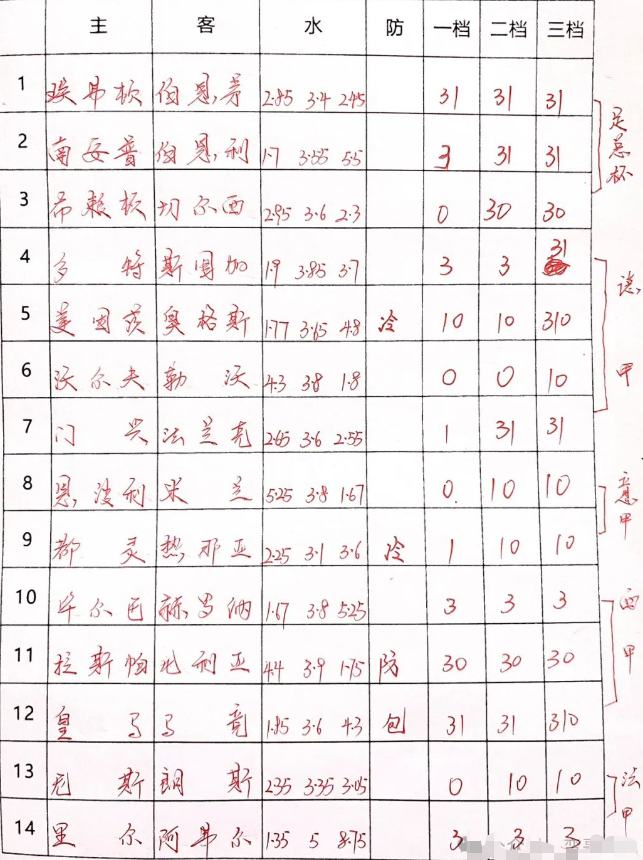 主 客 水 防 一档 二档 三档
1 埃弗顿 伯恩茅 2.85 3.4 2.45 31 31 31
2 南安普 伯恩利 1.7 3.55 5.5 3 31 31
足总杯
3 布赖顿 切尔西 2.95 3.6 2.3 0 30 30
4 多特 斯图加 1.9 3.85 3.7 3 3 31
5 美因茨 奥格斯 1.77 3.65 4.8 冷 10 10 310
德甲
6 沃尔夫 勒沃 4.3 3.8 1.8 0 0 10
7 门兴 法兰克 2.65 3.6 2.55 1 31 31
8 恩波利 米兰 5.25 3.8 1.67 0 10 10
意甲
9 都灵 热那亚 2.25 3.1 3.6 冷 1 10 10
10 毕尔巴 赫罗纳 1.67 3.8 5.25 3 3 3
西甲
11 拉斯帕 比利亚 4.4 3.9 1.75 防 30 30 30
12 皇马 马竞 1.85 3.6 4.3 包 31 31 310
13 尼斯 朗斯 2.35 3.35 3.05 0 10 10
法甲
14 里尔 阿弗尔 1.35 5 8.75 3 3 3